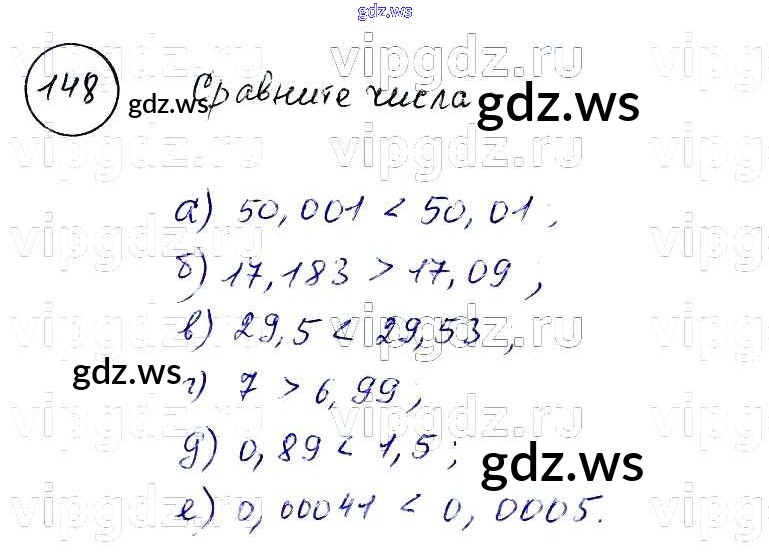 gdz.ws
148 Сравните числа
gdz.ws
gdz.ws
vipgdz.ru vipgdz.ru
vipgdz.ru vipgdz.ru
а) 50,001 < 50,01;
vipgdz.ru vipgdz.ru
б) 17,183 > 17,09;
в) 29,5 < 29,53;
vipgdz.ru vipgdz.ru
gdz.ws
г) 7 > 6,99;
vipgdz.ru vipgdz.ru
д) 0,89 < 1,5;
gdz.ws
е) 0,00041 < 0,0005.
vipgdz.ru vipgdz.ru